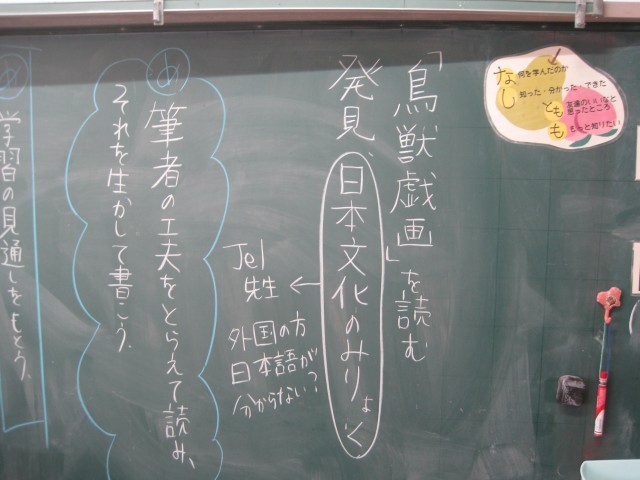 なし 何を学んだのか
知った・分かった・できた
とも 友達のいいなと思ったところ
も もっと知りたい
「鳥獣戯画」を読む
発見、日本文化のみりょく
Jel先生
外国の方
日本語が
分からない?
め
筆者の工夫をとらえて読み、
それを生かして書こう。
め
学習の見通しをもとう。